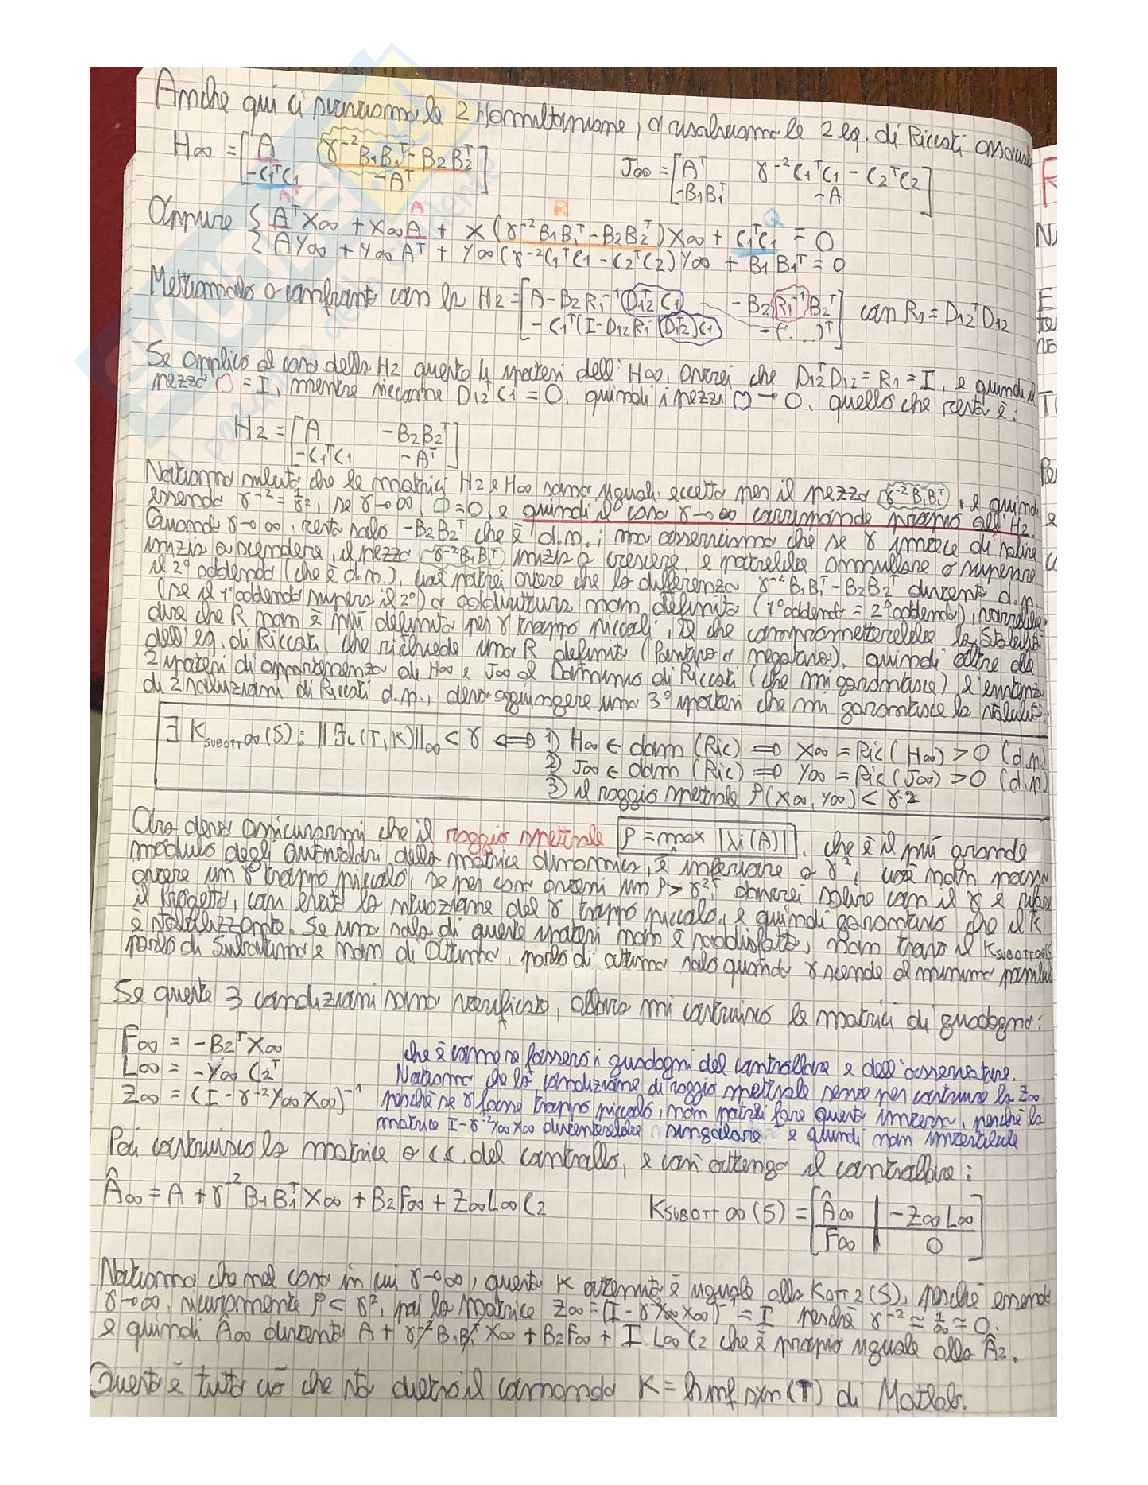 Anche qui ci scriviamo le 2 Hamiltoniane, o risolviamo le 2 eq. di Riccati associate
H∞ = [A γ⁻²B₁B₁ᵀ-B₂B₂ᵀ
-C₁ᵀC₁ -Aᵀ]
J∞ = [Aᵀ γ⁻²C₁ᵀC₁ - C₂ᵀC₂
-B₁B₁ᵀ -A]
Oppure { AᵀX∞ + X∞A + X(γ⁻²B₁B₁ᵀ-B₂B₂ᵀ)X∞ + C₁ᵀC₁ = 0
{ AY∞ + Y∞Aᵀ + Y∞(γ⁻²C₁ᵀC₁ - C₂ᵀC₂)Y∞ + B₁B₁ᵀ = 0
Mettiamolo a confronto con la H₂ = [A-B₂R₁⁻¹D₁₂ᵀC₁ -B₂R₁⁻¹B₂ᵀ
-C₁ᵀ(I-D₁₂R₁⁻¹D₁₂ᵀ)C₁ -(...)ᵀ] con R₁ = D₁₂ᵀD₁₂
Se applico al caso della H2 queste 4 ipotesi dell'H∞, ovvero che D₁₂ᵀD₁₂ = R₁ = I, e quindi il
pezzo = I, mentre siccome D₁₂ᵀC₁ = 0, quindi i pezzi → 0, quello che resta è:
H₂ = [A -B₂B₂ᵀ
-C₁ᵀC₁ -Aᵀ]
Notiamo subito che le matrici H₂ e H∞ sono uguali eccetto per il pezzo γ⁻²B₁B₁ᵀ, e quindi
essendo γ⁻² = 1/γ², se γ→∞, = 0, e quindi il caso γ→∞ corrisponde proprio all'H₂.
Quando γ→∞, resta solo -B₂B₂ᵀ che è d.n., ma osserviamo che se γ invece di salire
inizia a scendere, il pezzo γ⁻²B₁B₁ᵀ inizia a crescere, e potrebbe annullare o superare
il 2° addendo (che è d.n.), così potrei avere che la differenza γ⁻²B₁B₁ᵀ-B₂B₂ᵀ diventa d.p.
(se il 1° addendo supera il 2°) o addirittura non definita (1° addendo = 2° addendo), vorrebbe
dire che R non è più definita per γ troppo piccoli, il che comprometterebbe la stabilità
dell'eq. di Riccati, che richiede una R definita (positiva o negativa), quindi oltre alle
2 ipotesi di appartenenza di H∞ e J∞ al Dominio di Riccati (che mi garantisce) l'esistenza
di 2 soluzioni di Riccati d.p., devo aggiungere una 3° ipotesi che mi garantisce la stabilità
∃ Ksubott∞(s): ‖Fl(T,K)‖∞ < γ ⟺ 1) H∞ ∈ dom(Ric) ⇒ X∞ = Ric(H∞) > 0 (d.p.)
2) J∞ ∈ dom(Ric) ⇒ Y∞ = Ric(J∞) > 0 (d.p)
3) il raggio spettrale ρ(X∞, Y∞) < γ²
Ora devo assicurarmi che il raggio spettrale ρ = max |λi(A)|, che è il più grande
modulo degli autovalori della matrice dinamica, è inferiore a γ², così non posso
avere un γ troppo piccolo, se per caso ottieni un ρ > γ², dovrei salire con il γ e rifare
il progetto, con evito la situazione del γ troppo piccolo, e quindi garantisco che il K
è stabilizzante. Se una sola di queste ipotesi non è soddisfatta, non trovo il Ksubott∞(s)
parlo di Subottimo e non di Ottimo, parlo di ottimo solo quando γ scende al minimo possibile
Se queste 3 condizioni sono verificate, allora mi costruisco le matrici di guadagno:
F∞ = -B₂ᵀX∞
L∞ = -Y∞C₂ᵀ
Z∞ = (I - γ⁻²Y∞X∞)⁻¹
che è come se fossero i guadagni del controllore e dell'osservatore.
Notiamo che la condizione di raggio spettrale serve per costruire la Z∞
perché se γ fosse troppo piccolo, non potrei fare questa inversa, perché la
matrice I-γ⁻²Y∞X∞ diventerebbe singolare e quindi non invertibile
Poi costruisco la matrice a c.c. del controllo, e così ottengo il controllore:
Â∞ = A + γ⁻²B₁B₁ᵀX∞ + B₂F∞ + Z∞L∞C₂
Ksubott∞(s) = [Â∞ | -Z∞L∞
F∞ | 0]
Notiamo che nel caso in cui γ→∞, questo K ottenuto è uguale alla Kott2(s), perché essendo
γ→∞, sicuramente ρ < γ², poi la matrice Z∞ = (I - γ⁻²Y∞X∞)⁻¹ = I perché γ⁻² ≃ 1/∞ ≃ 0.
e quindi Â∞ diventa A + γ⁻²B₁B₁ᵀX∞ + B₂F∞ + I L∞C₂ che è proprio uguale alla Â₂.
Questo è tutto ciò che sta dietro il comando K = hinfsyn(T) di Matlab.